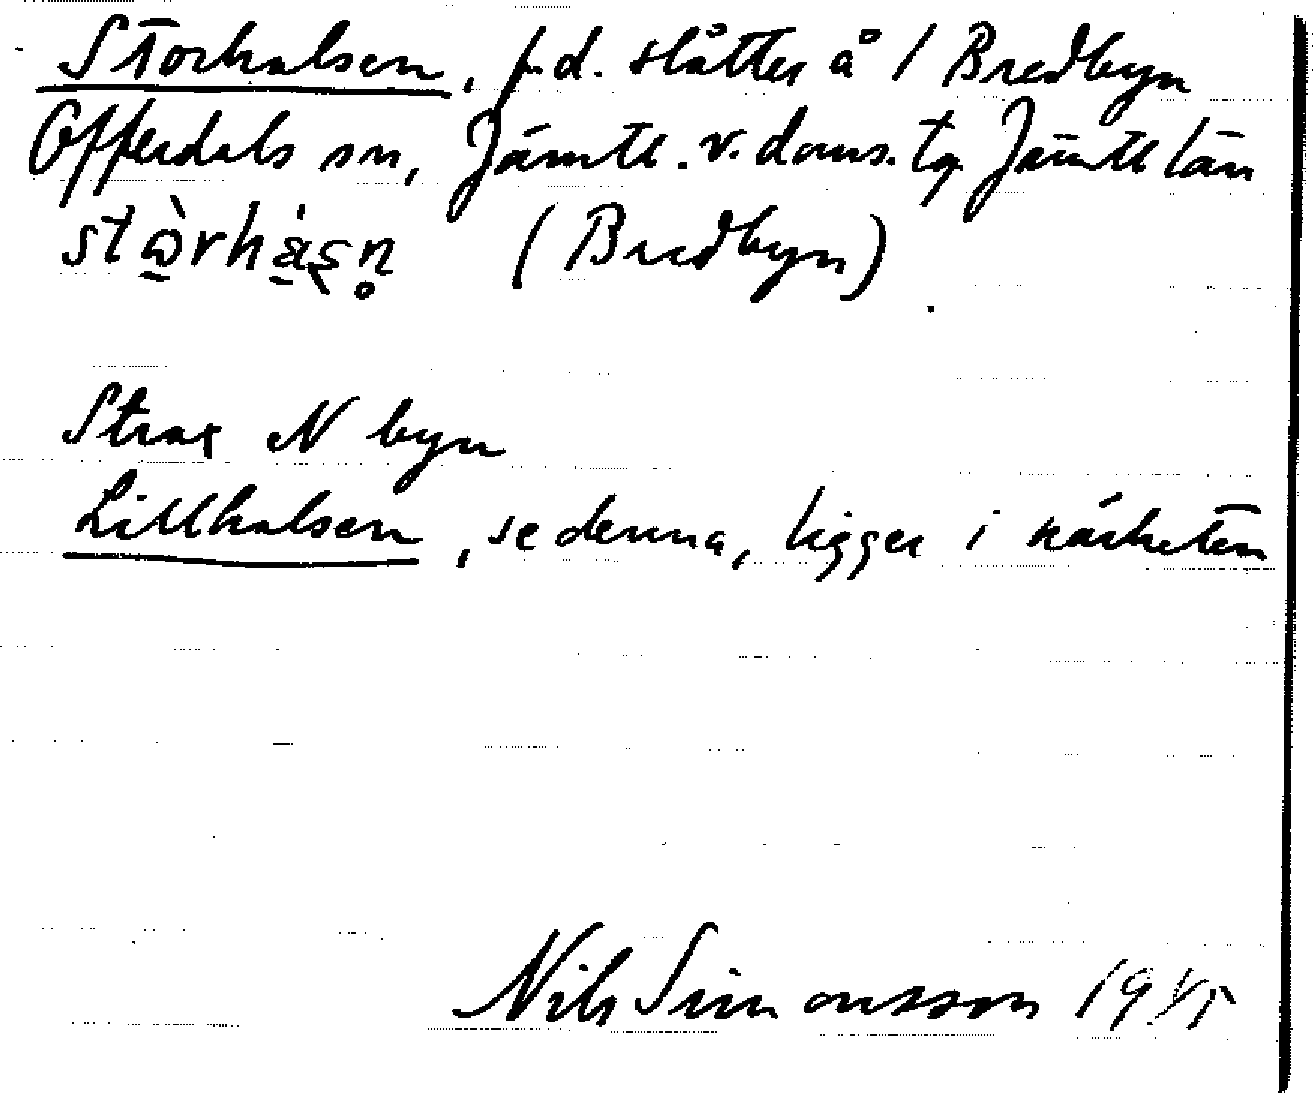 Storhalsen, f.d. slåtter å / Bredbyn
Offerdals sn, Jämtl. v. doms. tg Jämtl län
stὼrhásn̥ (Bredbyn)
Strax N byn
Lillhalsen, se denna, ligger i närheten
Nils Simonsson 1945